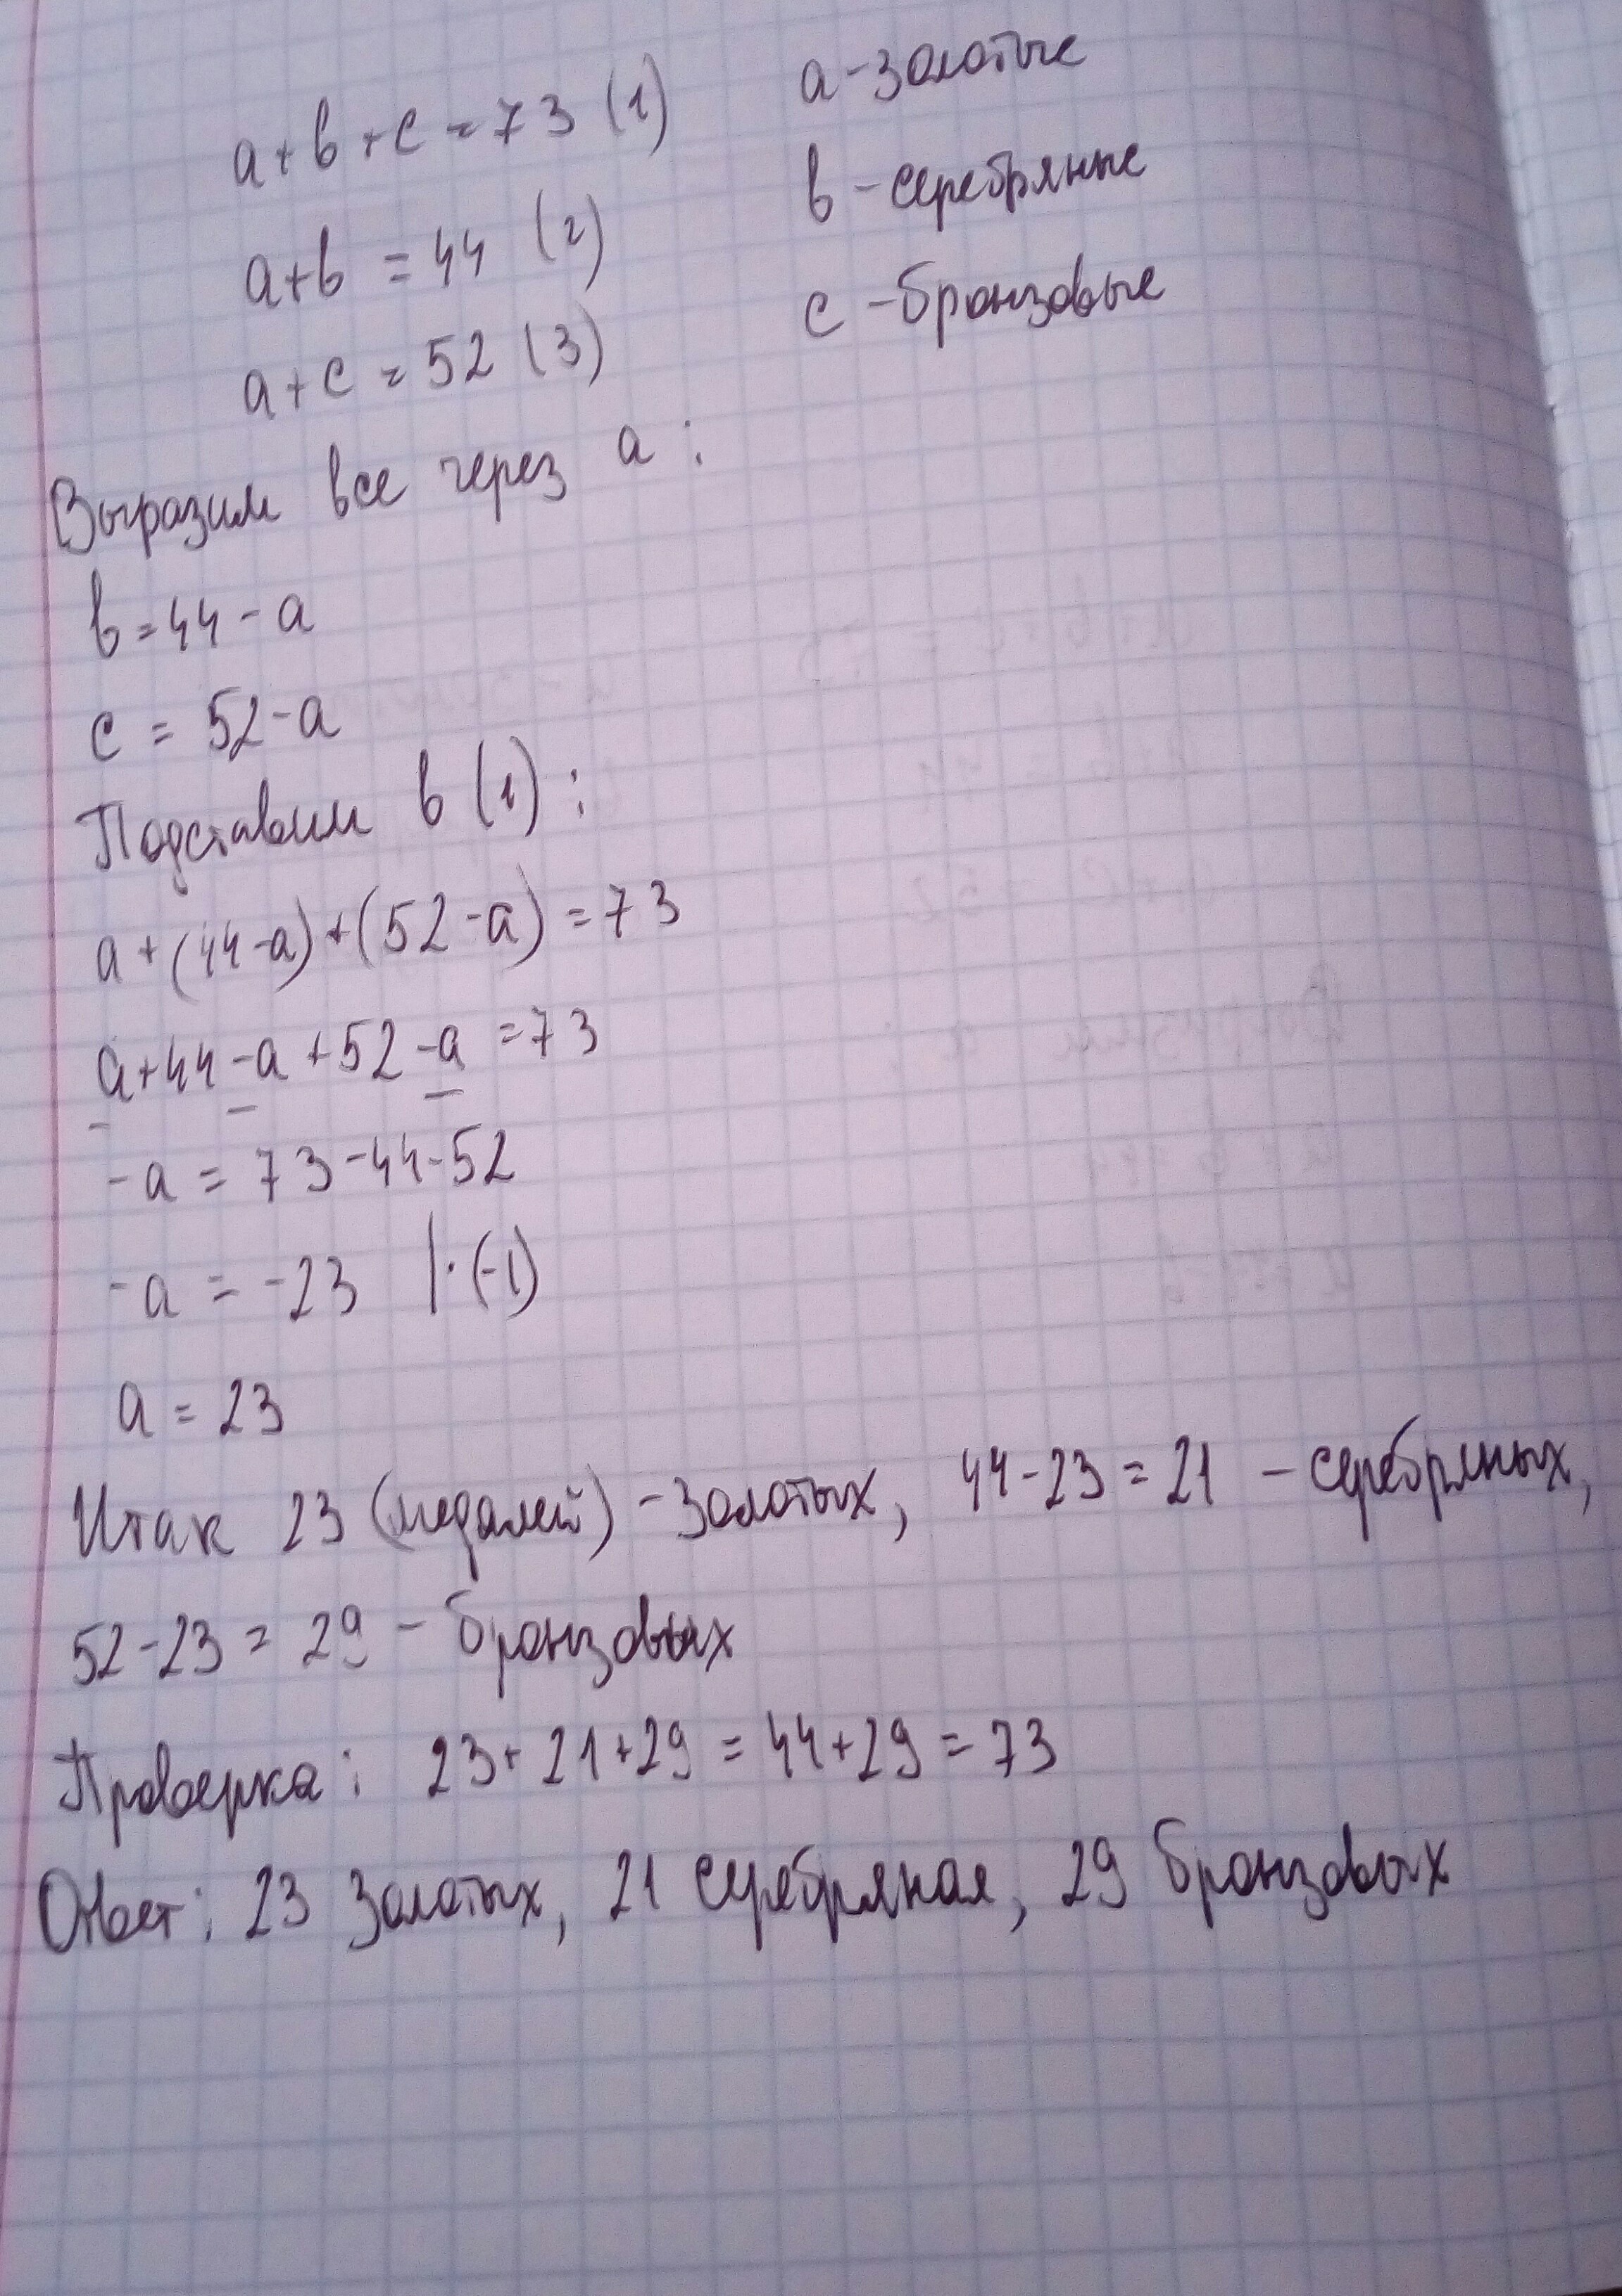 a+b+c=73 (1)
a-золотые
a+b=44 (2)
b-серебряные
a+c=52 (3)
c-бронзовые
Выразим все через a:
b=44-a
c=52-a
Подставим в (1):
a+(44-a)+(52-a)=73
a+44-a+52-a=73
-a=73-44-52
-a=-23 |·(-1)
a=23
Итак 23 (медалей)-золотых, 44-23=21 - серебряных,
52-23=29 - бронзовых
Проверка: 23+21+29=44+29=73
Ответ: 23 золотых, 21 серебряная, 29 бронзовых